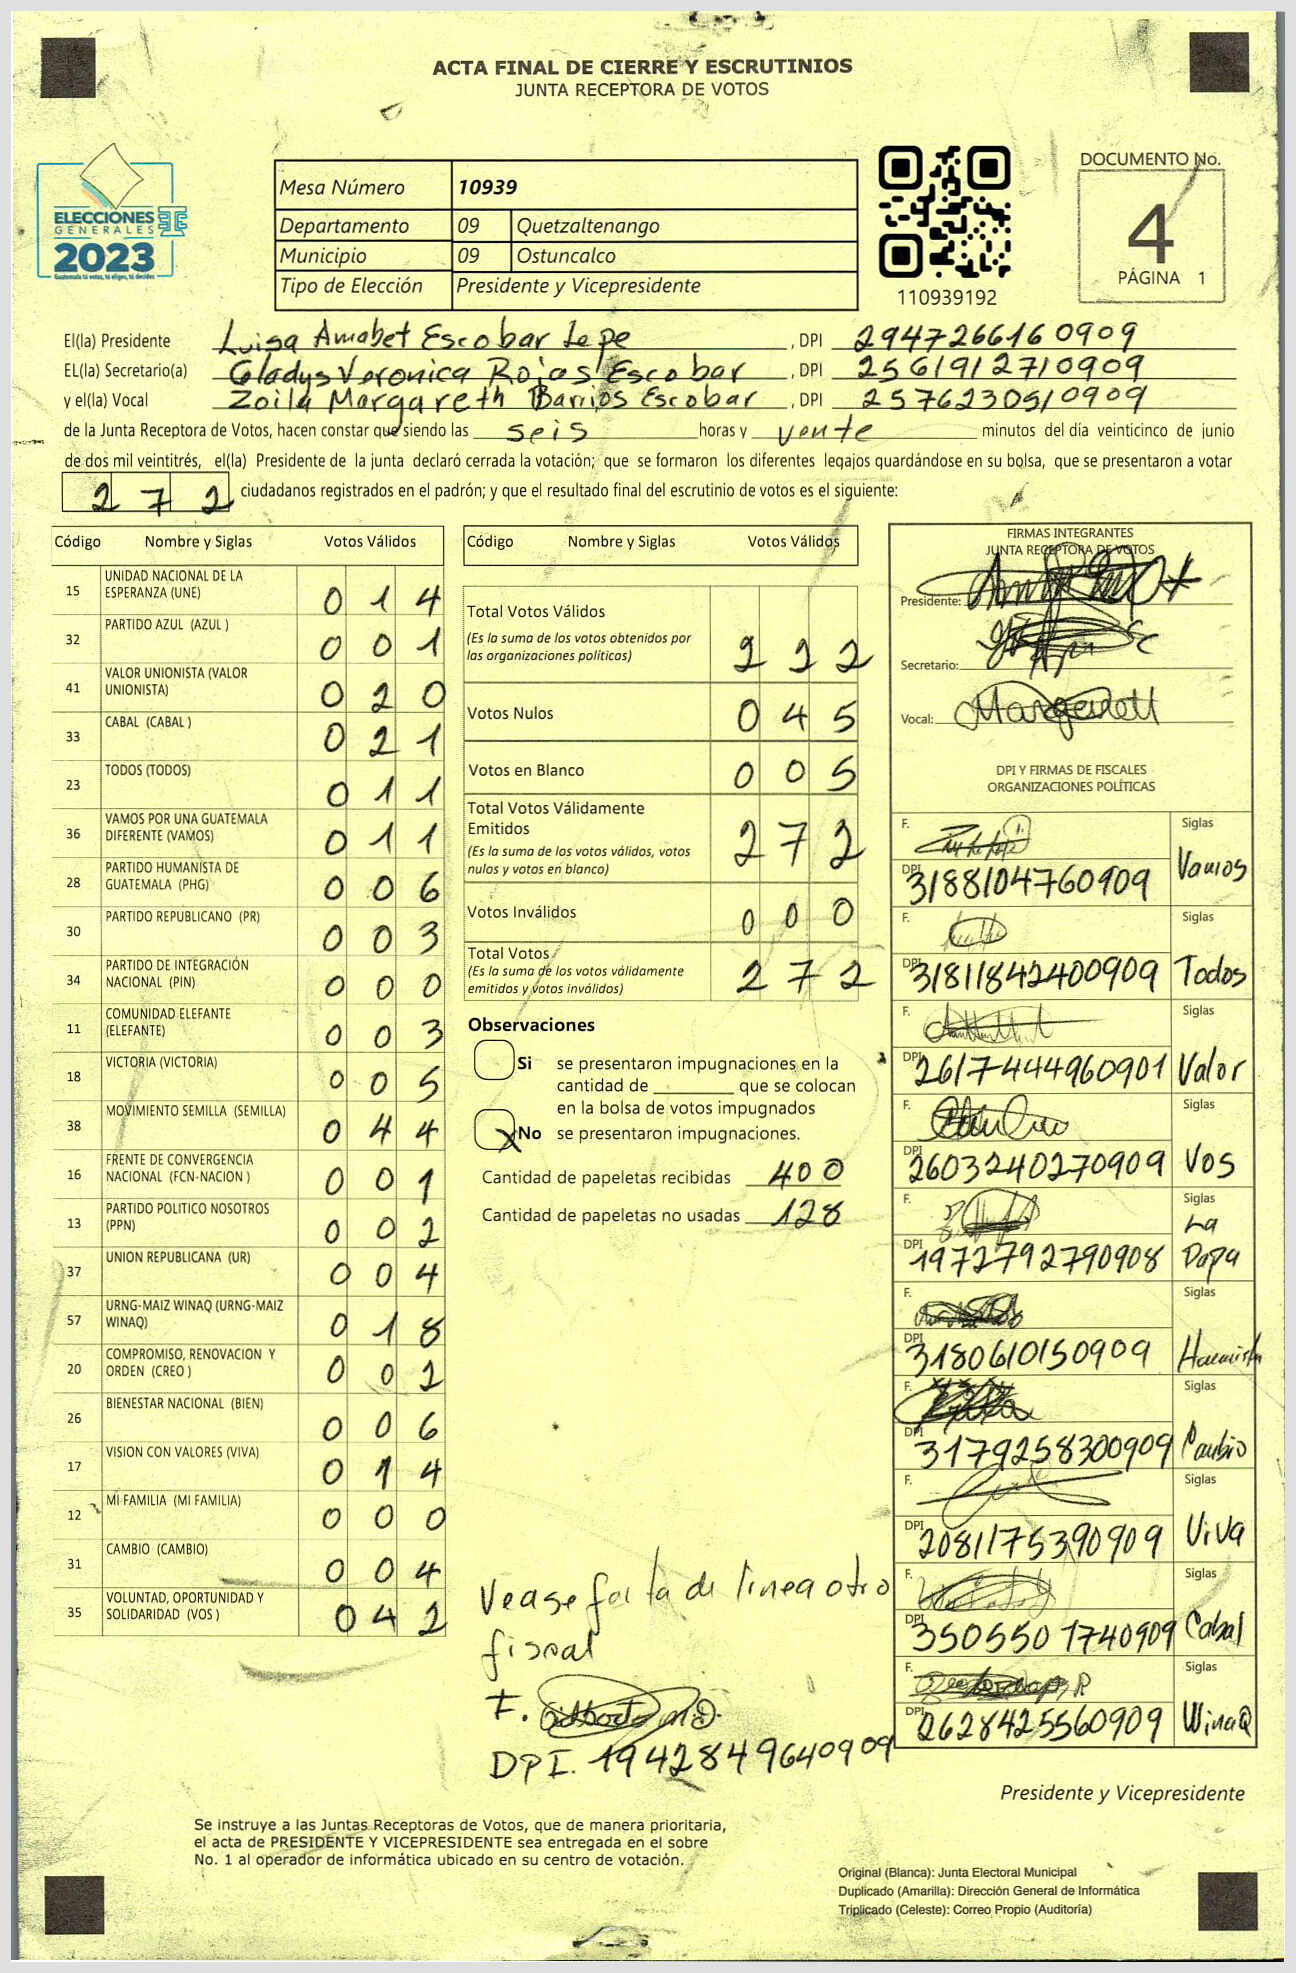 ACTA FINAL DE CIERRE Y ESCRUTINIOS
JUNTA RECEPTORA DE VOTOS
ELECCIONES
GENERALES
2023
Guatemala tú votas, tú eliges, tú decides
Mesa Número 10939
Departamento 09 Quetzaltenango
Municipio 09 Ostuncalco
Tipo de Elección Presidente y Vicepresidente
110939192
DOCUMENTO No.
4
PÁGINA 1
El(la) Presidente Luisa Amabet Escobar Lepe , DPI 2947266160909
EL(la) Secretario(a) Gladys Veronica Rojas Escobar , DPI 2561912710909
y el(la) Vocal Zoila Margareth Barrios Escobar , DPI 2576230510909
de la Junta Receptora de Votos, hacen constar que siendo las seis horas y vente minutos del día veinticinco de junio
de dos mil veintitrés, el(la) Presidente de la junta declaró cerrada la votación; que se formaron los diferentes legajos guardándose en su bolsa, que se presentaron a votar
272 ciudadanos registrados en el padrón; y que el resultado final del escrutinio de votos es el siguiente:
Código Nombre y Siglas Votos Válidos
15 UNIDAD NACIONAL DE LA ESPERANZA (UNE) 014
32 PARTIDO AZUL (AZUL ) 001
41 VALOR UNIONISTA (VALOR UNIONISTA) 020
33 CABAL (CABAL ) 021
23 TODOS (TODOS) 011
36 VAMOS POR UNA GUATEMALA DIFERENTE (VAMOS) 011
28 PARTIDO HUMANISTA DE GUATEMALA (PHG) 006
30 PARTIDO REPUBLICANO (PR) 003
34 PARTIDO DE INTEGRACIÓN NACIONAL (PIN) 000
11 COMUNIDAD ELEFANTE (ELEFANTE) 003
18 VICTORIA (VICTORIA) 005
38 MOVIMIENTO SEMILLA (SEMILLA) 044
16 FRENTE DE CONVERGENCIA NACIONAL (FCN-NACION ) 001
13 PARTIDO POLITICO NOSOTROS (PPN) 002
37 UNION REPUBLICANA (UR) 004
57 URNG-MAIZ WINAQ (URNG-MAIZ WINAQ) 018
20 COMPROMISO, RENOVACION Y ORDEN (CREO ) 002
26 BIENESTAR NACIONAL (BIEN) 006
17 VISION CON VALORES (VIVA) 014
12 MI FAMILIA (MI FAMILIA) 000
31 CAMBIO (CAMBIO) 004
35 VOLUNTAD, OPORTUNIDAD Y SOLIDARIDAD (VOS ) 042
Código Nombre y Siglas Votos Válidos
Total Votos Válidos
(Es la suma de los votos obtenidos por
las organizaciones políticas) 222
Votos Nulos 045
Votos en Blanco 005
Total Votos Válidamente
Emitidos
(Es la suma de los votos válidos, votos
nulos y votos en blanco) 272
Votos Inválidos 000
Total Votos
(Es la suma de los votos válidamente
emitidos y votos inválidos) 272
Observaciones
Si se presentaron impugnaciones en la
cantidad de ________ que se colocan
en la bolsa de votos impugnados
X No se presentaron impugnaciones.
Cantidad de papeletas recibidas 400
Cantidad de papeletas no usadas 128
Vease falta de linea otro
fiscal
F.
DPI. 1942849640909
FIRMAS INTEGRANTES
JUNTA RECEPTORA DE VOTOS
Presidente:
Secretario:
Vocal: Margareth
DPI Y FIRMAS DE FISCALES
ORGANIZACIONES POLÍTICAS
F. Siglas
DPI 3188104760909 Vamos
F. Siglas
DPI 3181184240909 Todos
F. Siglas
DPI 2617444960901 Valor
F. Siglas
DPI 2603240270909 Vos
F. Siglas
La
DPI 1972792790908 Papa
F. Siglas
DPI 3180610150909
F. Siglas
DPI 3179258300909 Cambio
F. Siglas
DPI 2081175390909 ViVa
F. Siglas
DPI 3505501740909 Cabal
F. Siglas
DPI 2628425560909 WinaQ
Presidente y Vicepresidente
Se instruye a las Juntas Receptoras de Votos, que de manera prioritaria,
el acta de PRESIDENTE Y VICEPRESIDENTE sea entregada en el sobre
No. 1 al operador de informática ubicado en su centro de votación.
Original (Blanca): Junta Electoral Municipal
Duplicado (Amarilla): Dirección General de Informática
Triplicado (Celeste): Correo Propio (Auditoría)